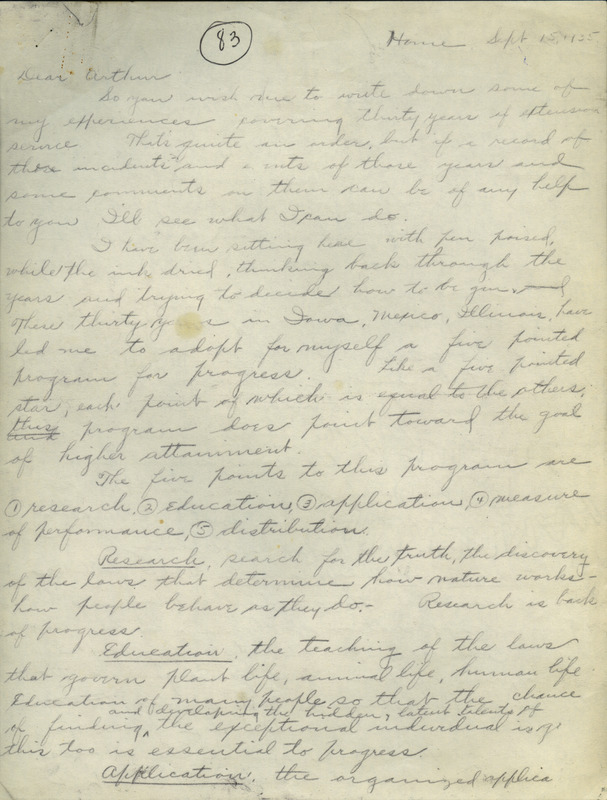 83
Home Sept 15, 1955
Dear Arthur
So you wish me to write down some of
my experiences covering thirty years of extension
service That's quite an order, but if a record of
those incidents and events of those years and
some comments on them can be of any help
to you I'll see what I can do.
I have been sitting here with pen poised,
while the ink dried, thinking back through the
years and trying to decide how to begin.
These thirty years in Iowa, Mexico, Illinois, have
led me to adopt for myself a five pointed
program for progress. Like a five pointed
star, each point of which is equal to the others,
this program does point toward the goal
of higher attainment.
The five points to this program are
① research, ② Education, ③ application, ④ measure
of performance, ⑤ distribution.
Research, search for the truth, the discovery
of the laws that determine how nature works -
how people behave as they do. - Research is back
of progress.
Education, the teaching of the laws
that govern plant life, animal life, human life.
Education of many people so that the chance
and developing the hidden, latent talents of
of finding the exceptional individual is
this too is essential to progress.
Application, the organized applica